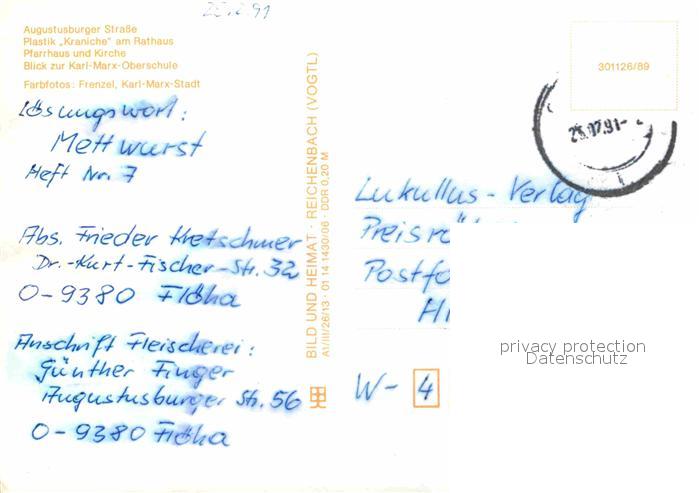 25.2.91
Augustusburger Straße
Plastik „Kraniche" am Rathaus
Pfarrhaus und Kirche
Blick zur Karl-Marx-Oberschule
Farbfotos: Frenzel, Karl-Marx-Stadt
Lösungswort:
Mettwurst
Heft Nr. 7
Abs. Frieder Kretschmer
Dr.-Kurt-Fischer-Str. 32
O-9380 Flöha
Anschrift Fleischerei:
Günther Finger
Augustusburger Str. 56
O-9380 Flöha
BILD UND HEIMAT · REICHENBACH (VOGTL)
A1/III/26/13 · 01 14 1430/06 · DDR 0,20 M
301126/89
25.07.91
Lukullus-Verlag
Preisrä
Postfa
W- 4
privacy protection
Datenschutz